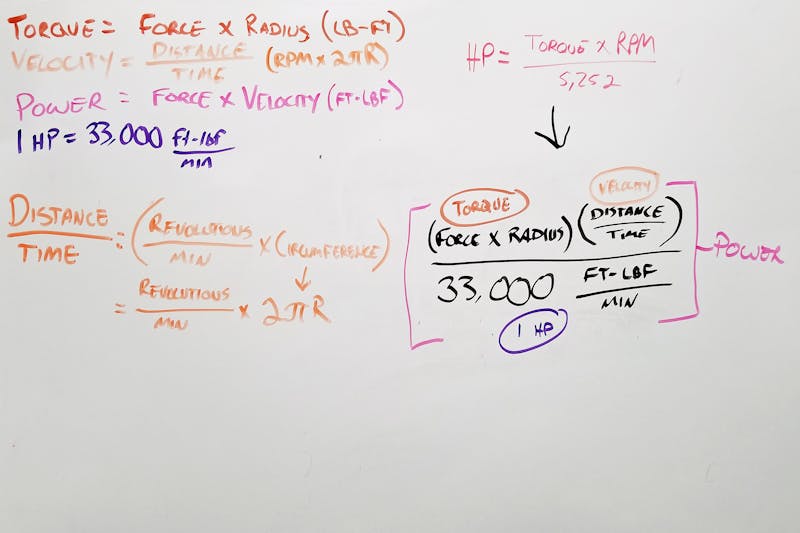 TORQUE = FORCE X RADIUS (LB-FT)
VELOCITY = DISTANCE / TIME (RPM X 2πR)
POWER = FORCE X VELOCITY (FT-LBF)
1 HP = 33,000 FT-LBF / MIN
HP = TORQUE X RPM / 5,252
DISTANCE / TIME = (REVOLUTIONS / MIN X CIRCUMFERENCE)
= REVOLUTIONS / MIN X 2πR
TORQUE
VELOCITY
(FORCE X RADIUS) (DISTANCE / TIME)
33,000 FT-LBF / MIN
1 HP
POWER